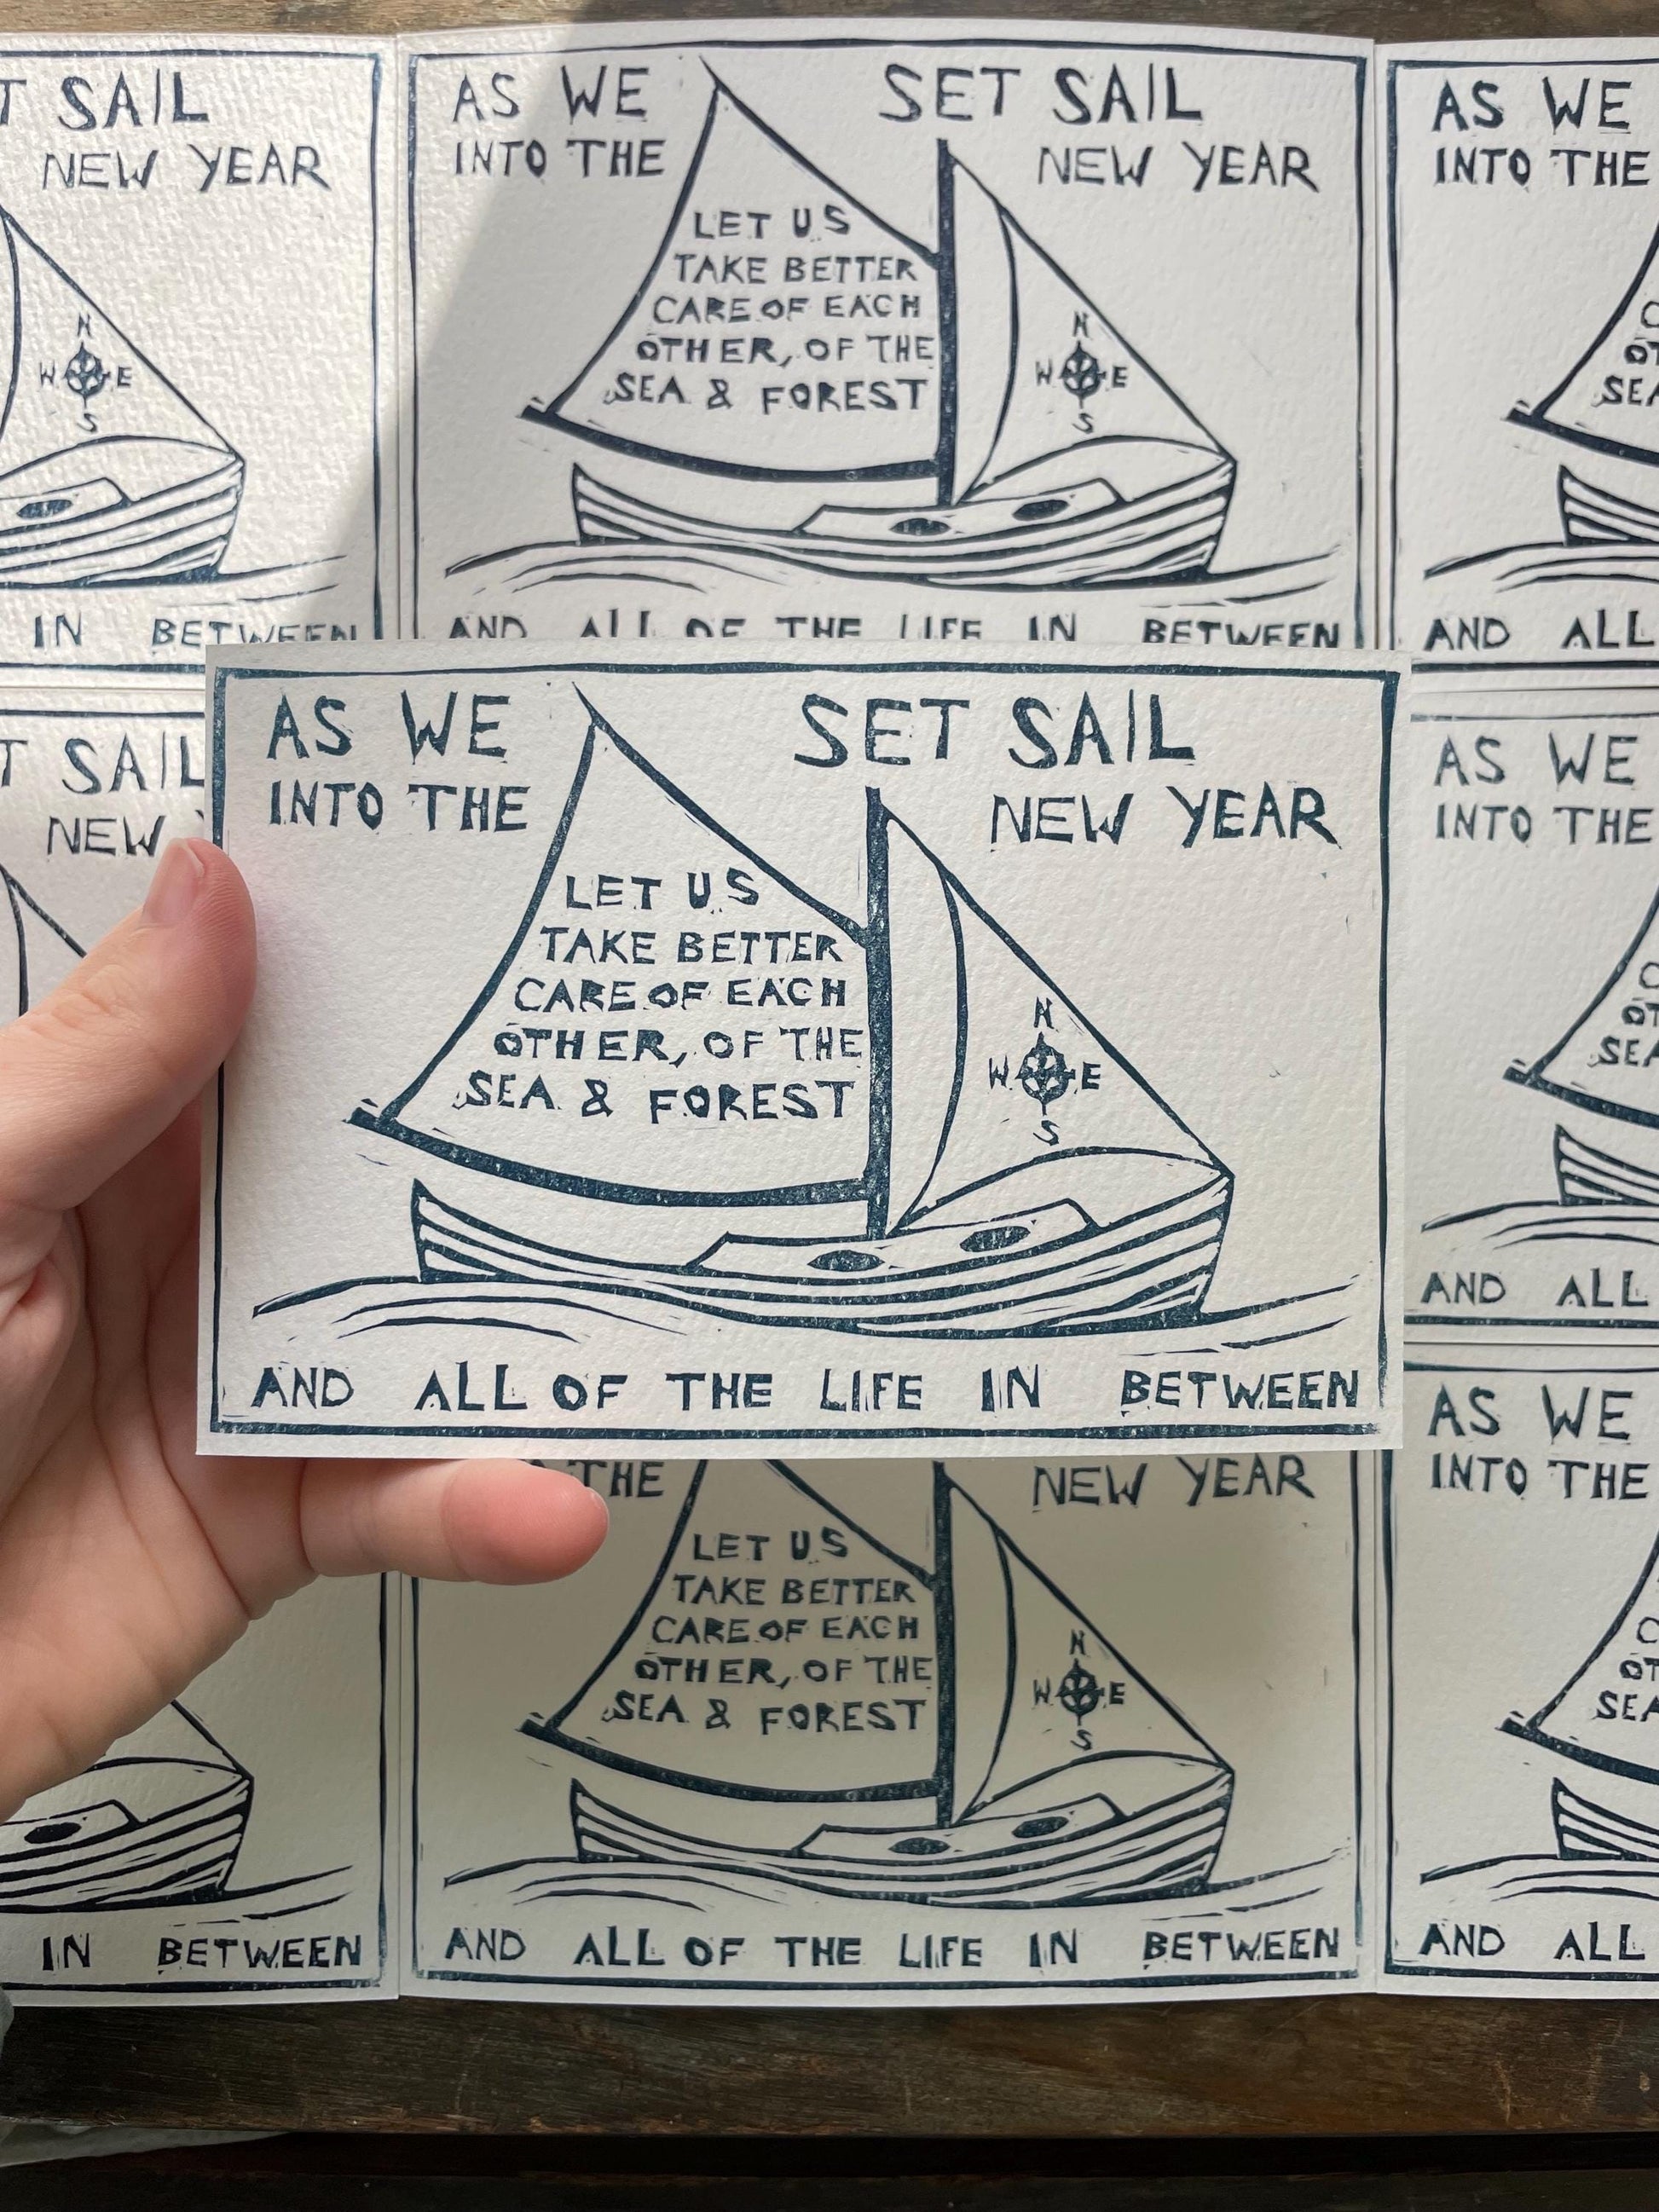 SAIL
NEW YEAR
N
W E
S
IN BETWEEN
AS WE SET SAIL
INTO THE NEW YEAR
LET US
TAKE BETTER
CARE OF EACH
OTHER, OF THE
SEA & FOREST
N
W E
S
AND ALL OF THE LIFE IN BETWEEN
AS WE
INTO THE
AND ALL
SAIL
NEW
AS WE SET SAIL
INTO THE NEW YEAR
LET US
TAKE BETTER
CARE OF EACH
OTHER, OF THE
SEA & FOREST
N
W E
S
AND ALL OF THE LIFE IN BETWEEN
AS WE
INTO THE
AND ALL
IN BETWEEN
THE NEW YEAR
LET US
TAKE BETTER
CARE OF EACH
OTHER, OF THE
SEA & FOREST
N
W E
S
AND ALL OF THE LIFE IN BETWEEN
AS WE
INTO THE
AND ALL